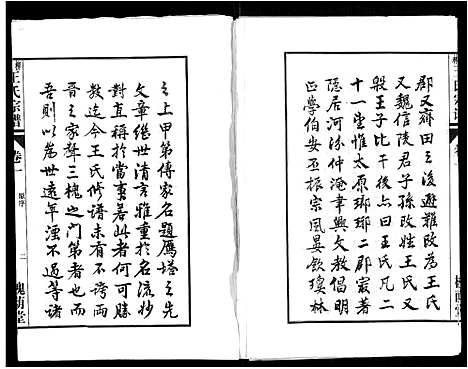 郡又齊田之後避難改為王氏
又魏信陵君子孫改姓王氏又
殷王子比干後亦曰王氏凡二
十一望惟太原瑯琊二郡最著
隱居河汾仲淹聿興文教倡明
正學伯安丕振宗風晏飲瓊林
之上甲第傳家名題鴈塔之先
文章繼世清言雅重於名流妙
對直稱於當事若此者何可勝
數迄今王氏修譜未有不遡青
晉之家聲三槐之門第者也
吾則以為世遠年湮不過等諸
王氏宗譜
卷一
二
槐蔭堂